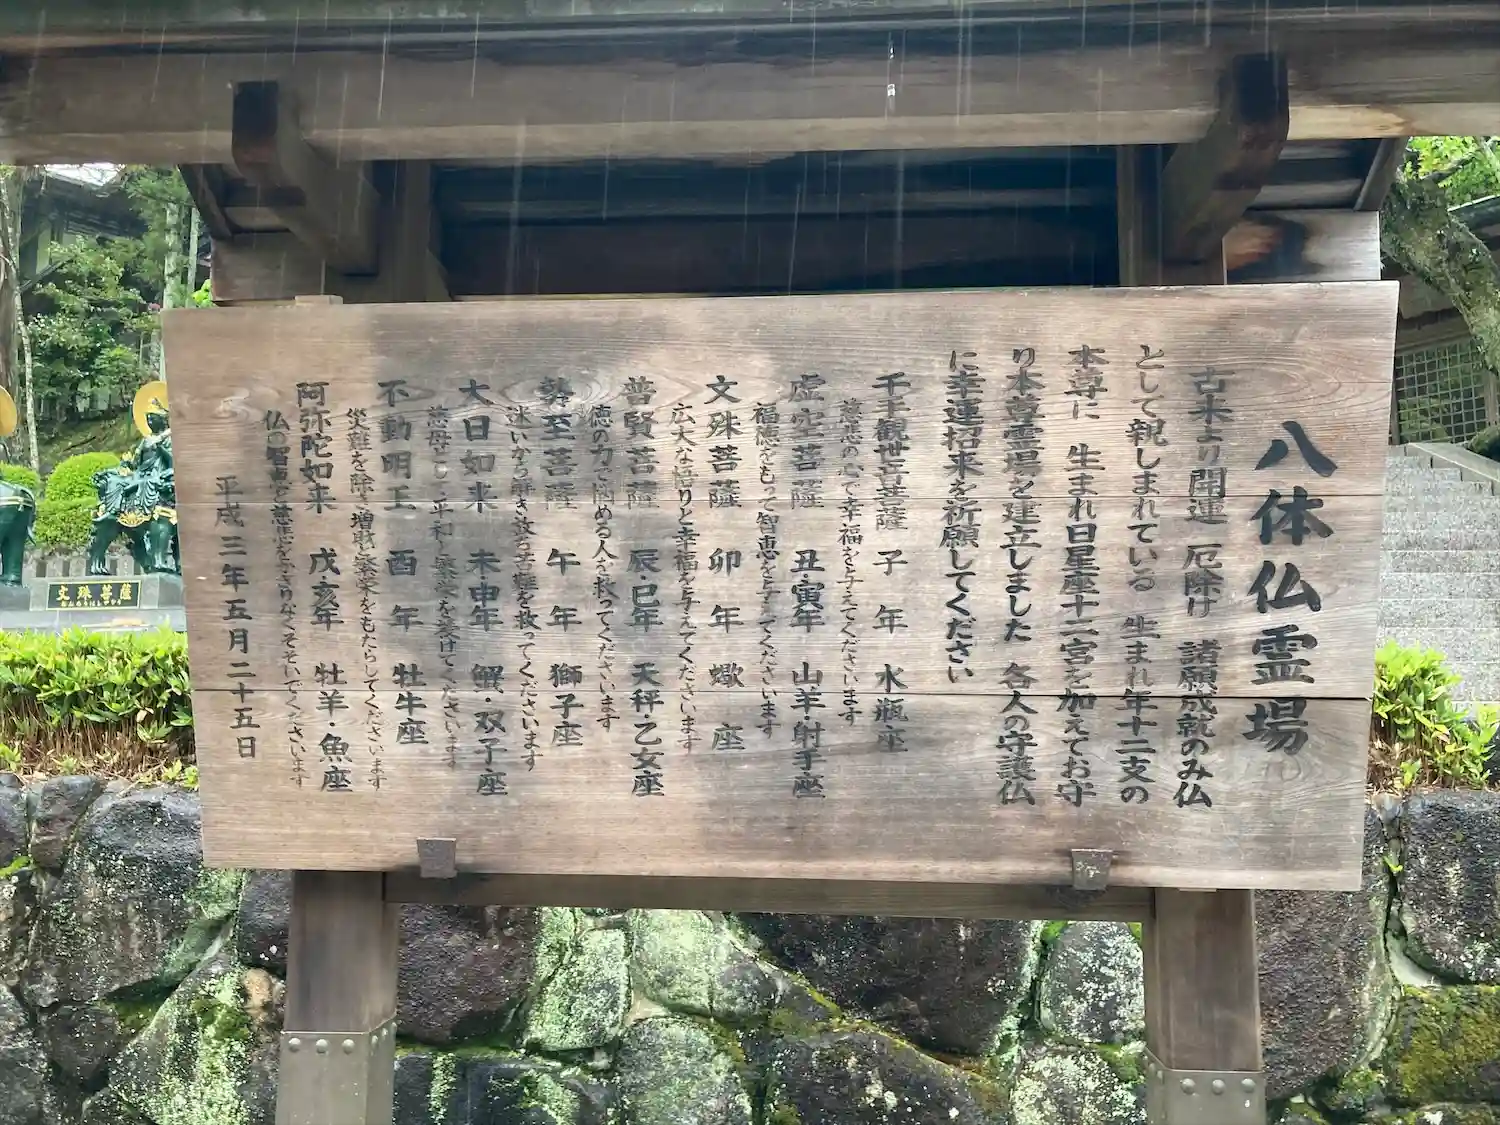 八体仏霊場
古来より開運 厄除け 諸願成就のみ仏
として親しまれている 生まれ年十二支の
本尊に 生まれ日星座十二宮を加えてお守
り本尊霊場を建立しました 各人の守護仏
に幸運招来を祈願してください
千手観世音菩薩 子年 水瓶座
慈悲の心で幸福を与えてくださいます
虚空菩薩 丑・寅年 山羊・射手座
福徳をもって智恵を与えてくださいます
文殊菩薩 卯年 蠍座
広大な悟りと幸福を与えてくださいます
普賢菩薩 辰・巳年 天秤・乙女座
徳の力で悩める人を救ってくださいます
勢至菩薩 午年 獅子座
迷いから解き放ち苦難を救ってくださいます
大日如来 未・申年 蟹・双子座
慈母とし平和と繁栄を授けてくださいます
不動明王 酉年 牡牛座
災難を除き増財と繁栄をもたらしてくださいます
阿弥陀如来 戌・亥年 牡羊・魚座
仏の智恵と慈悲をかぎりなくそそいでくださいます
平成三年五月二十五日
文殊菩薩